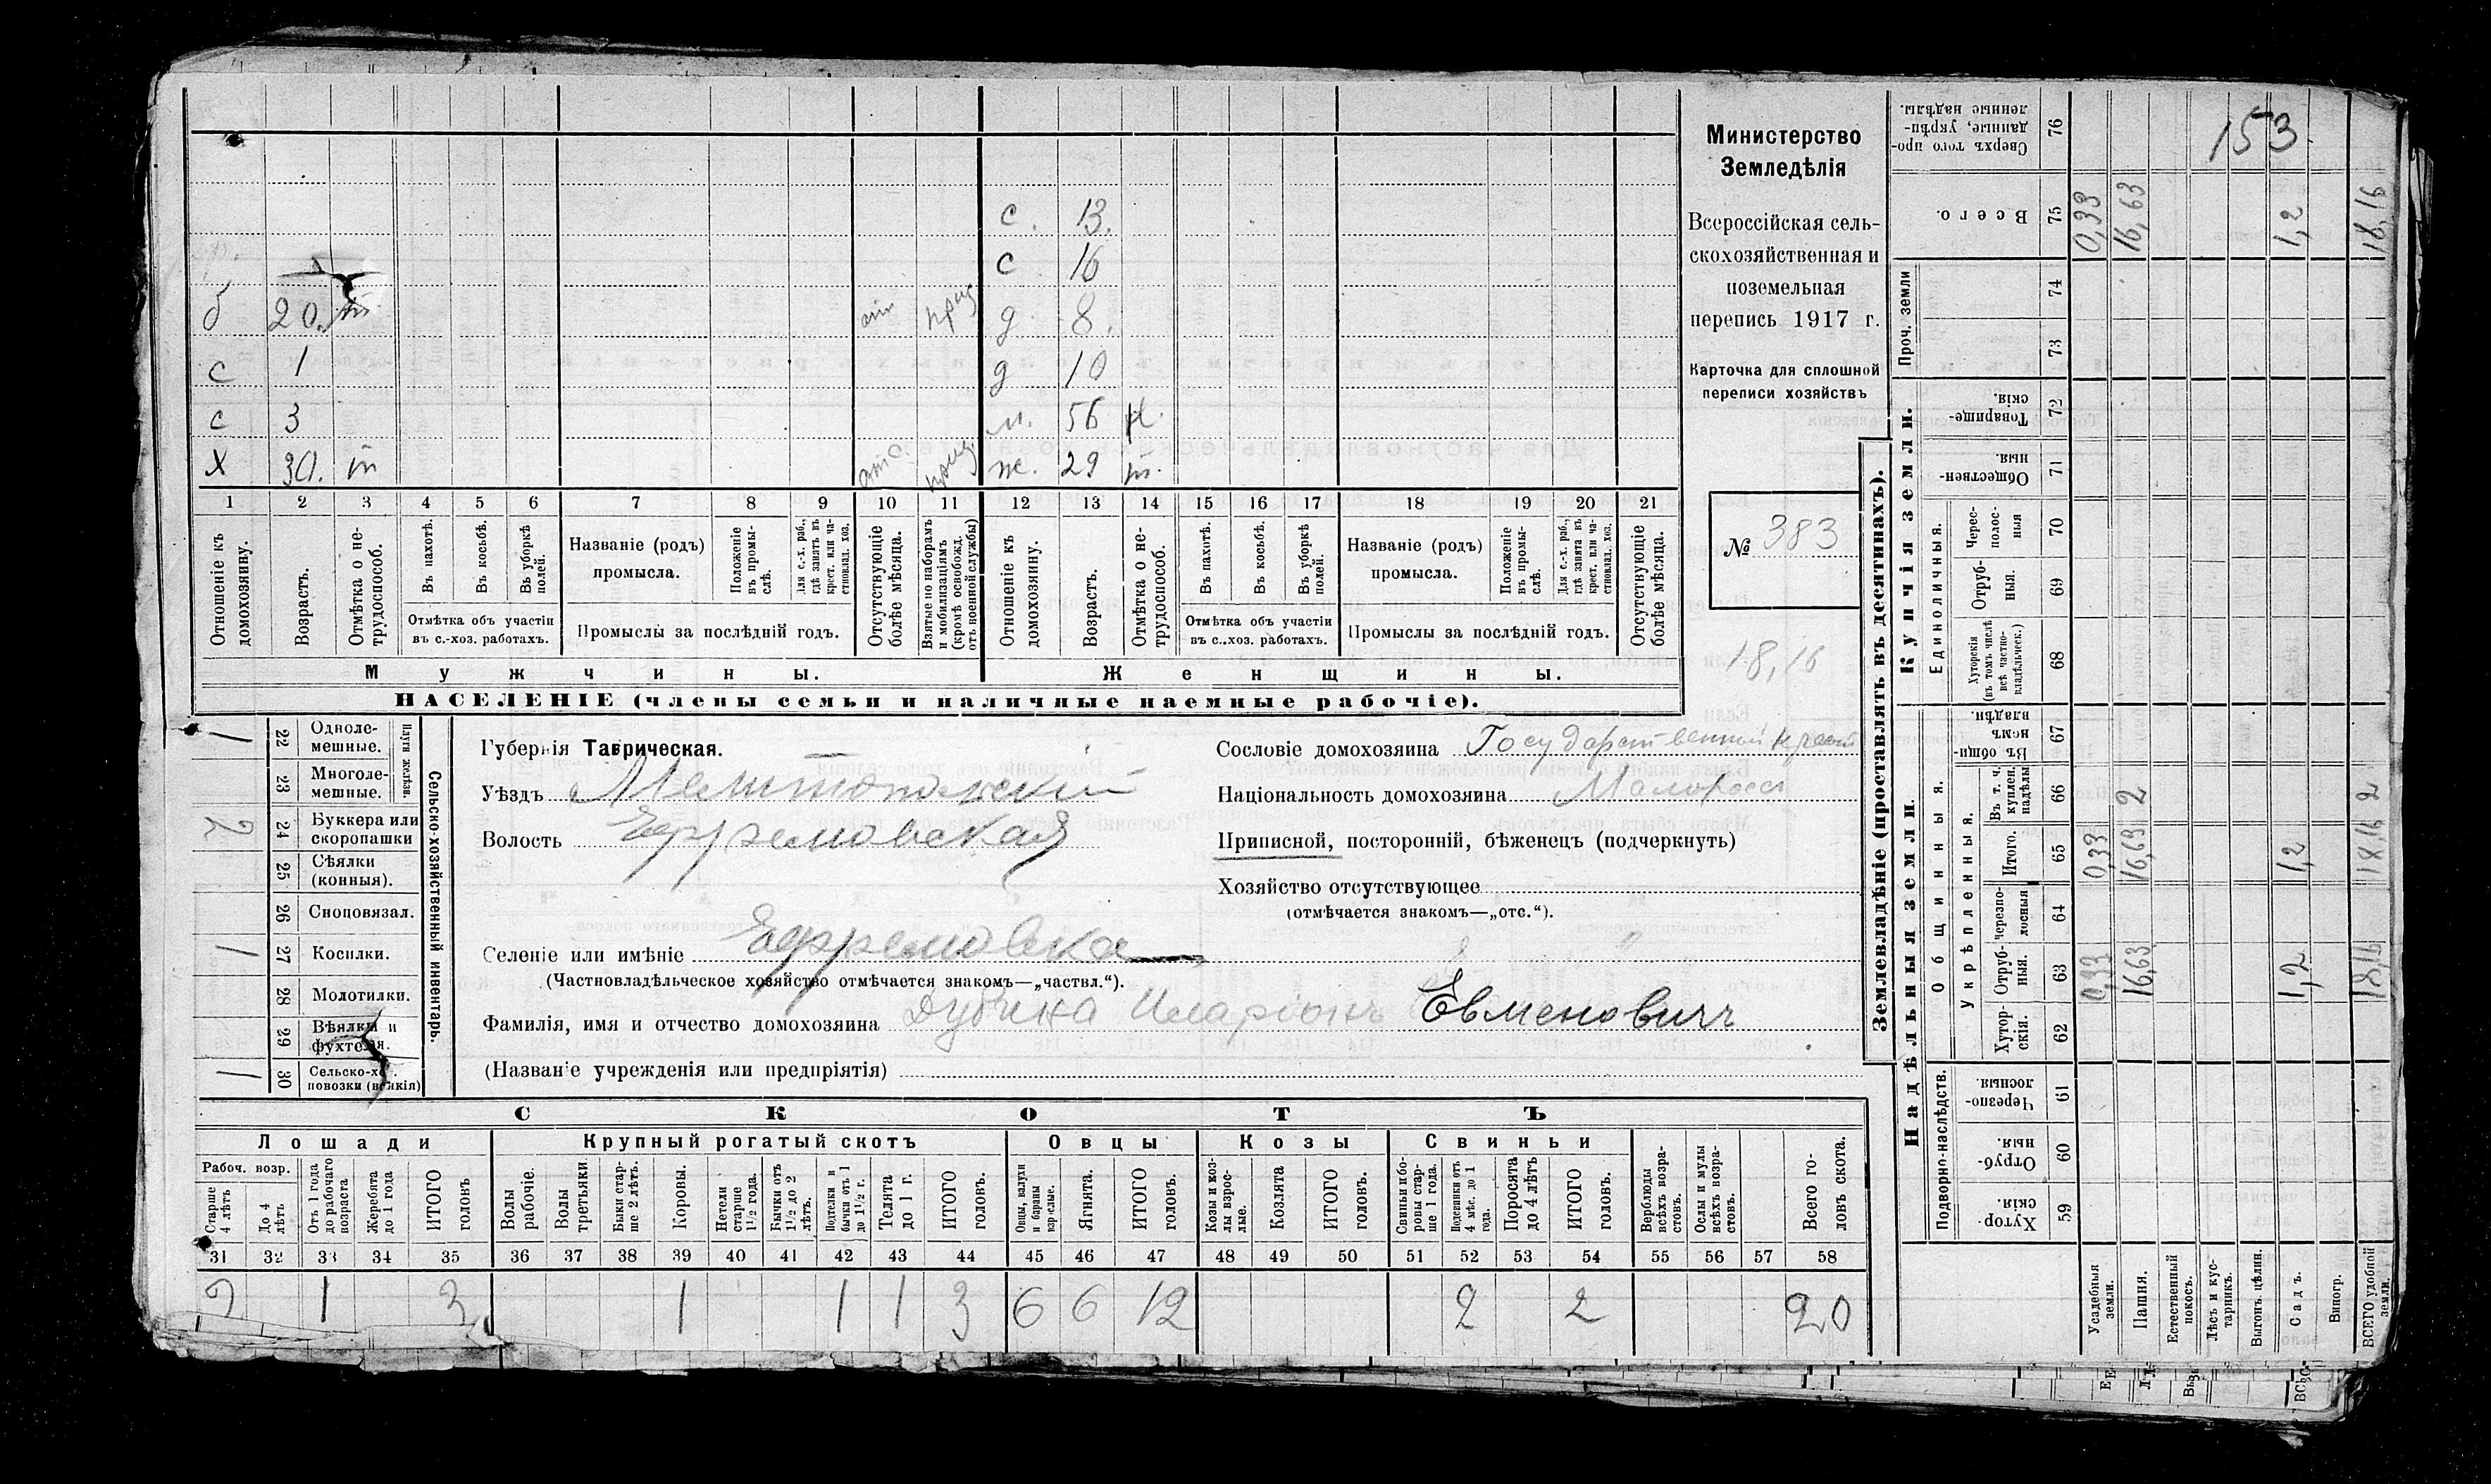 153.
с. 13.
с 16
б 20. т. отс призв д. 8.
с 1 д 10
с 3 м. 56 н.
х 30. т отс. призв ж. 29 т.
1 2 3 4 5 6 7 8 9 10 11 12 13 14 15 16 17 18 19 20 21
Отношеніе къ домохозяину.
Возрастъ.
Отмѣтка о нетрудоспособ.
Въ пахотѣ.
Въ косьбѣ.
Въ уборкѣ полей.
Отмѣтка объ участіи въ с.-хоз. работахъ.
Названіе (родъ) промысла.
Положеніе въ промыслѣ.
Для с.-х. раб., гдѣ занятъ въ крест. или частновлад. хоз.
Промыслы за послѣдній годъ.
Отсутствующіе болѣе мѣсяца.
Взятые по наборамъ и мобилизаціямъ (кромѣ освобожд. отъ военной службы)
Отношеніе къ домохозяину.
Возрастъ.
Отмѣтка о нетрудоспособ.
Въ пахотѣ.
Въ косьбѣ.
Въ уборкѣ полей.
Отмѣтка объ участіи въ с.-хоз. работахъ.
Названіе (родъ) промысла.
Положеніе въ промыслѣ.
Для с.-х. раб., гдѣ занята въ крест. или частновлад. хоз.
Промыслы за послѣдній годъ.
Отсутствующіе болѣе мѣсяца.
Мужчины. Женщины.
НАСЕЛЕНІЕ (члены семьи и наличные наемные рабочіе).
Министерство
Земледѣлія
Всероссійская сель-
скохозяйственная и
поземельная
перепись 1917 г.
Карточка для сплошной
переписи хозяйствъ
№ 383
18,16
Сельско-хозяйственный инвентарь.
Плуги желѣзн.
22 Одноле-мешные. 1
23 Многоле-мешные.
24 Буккера или скоропашки 2
25 Сѣялки (конныя).
26 Сноповязал.
27 Косилки. 1
28 Молотилки.
29 Вѣялки и фухтеля.
30 Сельско-хоз. повозки (всякія) 1
Губернія Таврическая.
Уѣздъ Мелитопольскій
Волость Ефремовская
Селеніе или имѣніе Ефремовка
(Частновладѣльческое хозяйство отмѣчается знакомъ—„частвл.“).
Фамилія, имя и отчество домохозяина Дубина Иларіонъ Евменовичъ
(Названіе учрежденія или предпріятія)
Сословіе домохозяина Государственный крест
Національность домохозяина Малоросъ
Приписной, посторонній, бѣженецъ (подчеркнуть)
Хозяйство отсутствующее
(отмѣчается знакомъ—„отс.“).
СКОТЪ
Лошади Крупный рогатый скотъ Овцы Козы Свиньи
Рабоч. возр.
Старше 4 лѣтъ
До 4 лѣтъ
Отъ 1 года до рабочаго возраста
Жеребята до 1 года
ИТОГО головъ
Волы рабочіе.
Волы третьяки.
Быки старше 2 лѣтъ.
Коровы.
Нетели старше 1½ года.
Бычки отъ 1½ до 2 лѣтъ.
Подтелки и бычки отъ 1 до 1½ г.
Телята до 1 г.
ИТОГО головъ.
Овцы, валухи и бараны взрослые.
Ягнята.
ИТОГО головъ.
Козы и козлы взрослые.
Козлята
ИТОГО головъ.
Свиньи и боровы старше 1 года.
Подсвинки отъ 4 мѣс. до 1 года.
Поросята до 4 лѣтъ
ИТОГО головъ.
Верблюды всѣхъ возрастовъ.
Ослы и мулы всѣхъ возрастовъ.
Всего головъ скота.
31 32 33 34 35 36 37 38 39 40 41 42 43 44 45 46 47 48 49 50 51 52 53 54 55 56 57 58
2 1 3 1 1 1 3 6 6 12 2 2 20
Землевладѣніе (проставлять въ десятинахъ).
Надѣльныя земли. Купчія земли.
Подворно-наслѣдств.
Общинныя.
Укрѣпленныя.
Единоличныя.
Проч. земли
59 Хуторскія
60 Отрубныя.
61 Черезполосныя.
62 Хуторскія.
63 Отрубныя. 0,33 16,63 1,2 18,16
64 Черезполосныя
65 Итого. 0,33 16,63 1,2 18,16
66 Въ т. ч. куплен. надѣлы 2 2
67 Въ общинномъ владѣн.
68 Хуторскія (въ томъ числѣ всѣ частновладѣльческ.)
69 Отрубныя.
70 Чересполосныя
71 Общественныя.
72 Товарищескія.
73
74
75 Всего. 0,33 16,63 1,2 18,16
76 Сверхъ того проданные, укрѣпленные надѣлы.
Усадебныя земли.
Пашня.
Естественный покосъ.
Лѣсъ и кустарникъ.
Выгонъ. цѣлин.
Садъ.
Виногр.
ВСЕГО удобной земли.